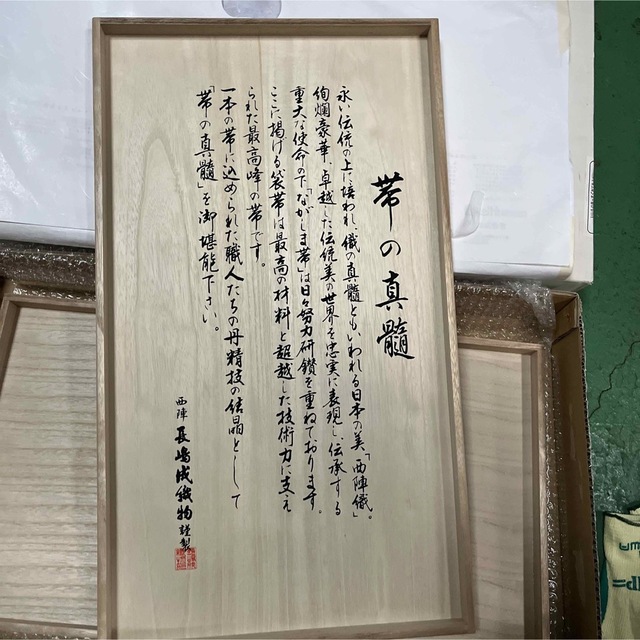 帯の真髄
永い伝統の上に培われ、織の真髄ともいわれる日本の美「西陣織」。
絢爛豪華、卓越した伝統美の世界を忠実に表現し、伝承する
重大な使命の下「ながしま帯」は日々努力研鑽を重ねております。
ここに掲げる袋帯は最高の材料と超越した技術力に支え
られた最高峰の帯です。
一本の帯に込められた職人たちの丹精技の結晶として
「帯の真髄」を御堪能下さい。
西陣 長嶋成織物 謹製